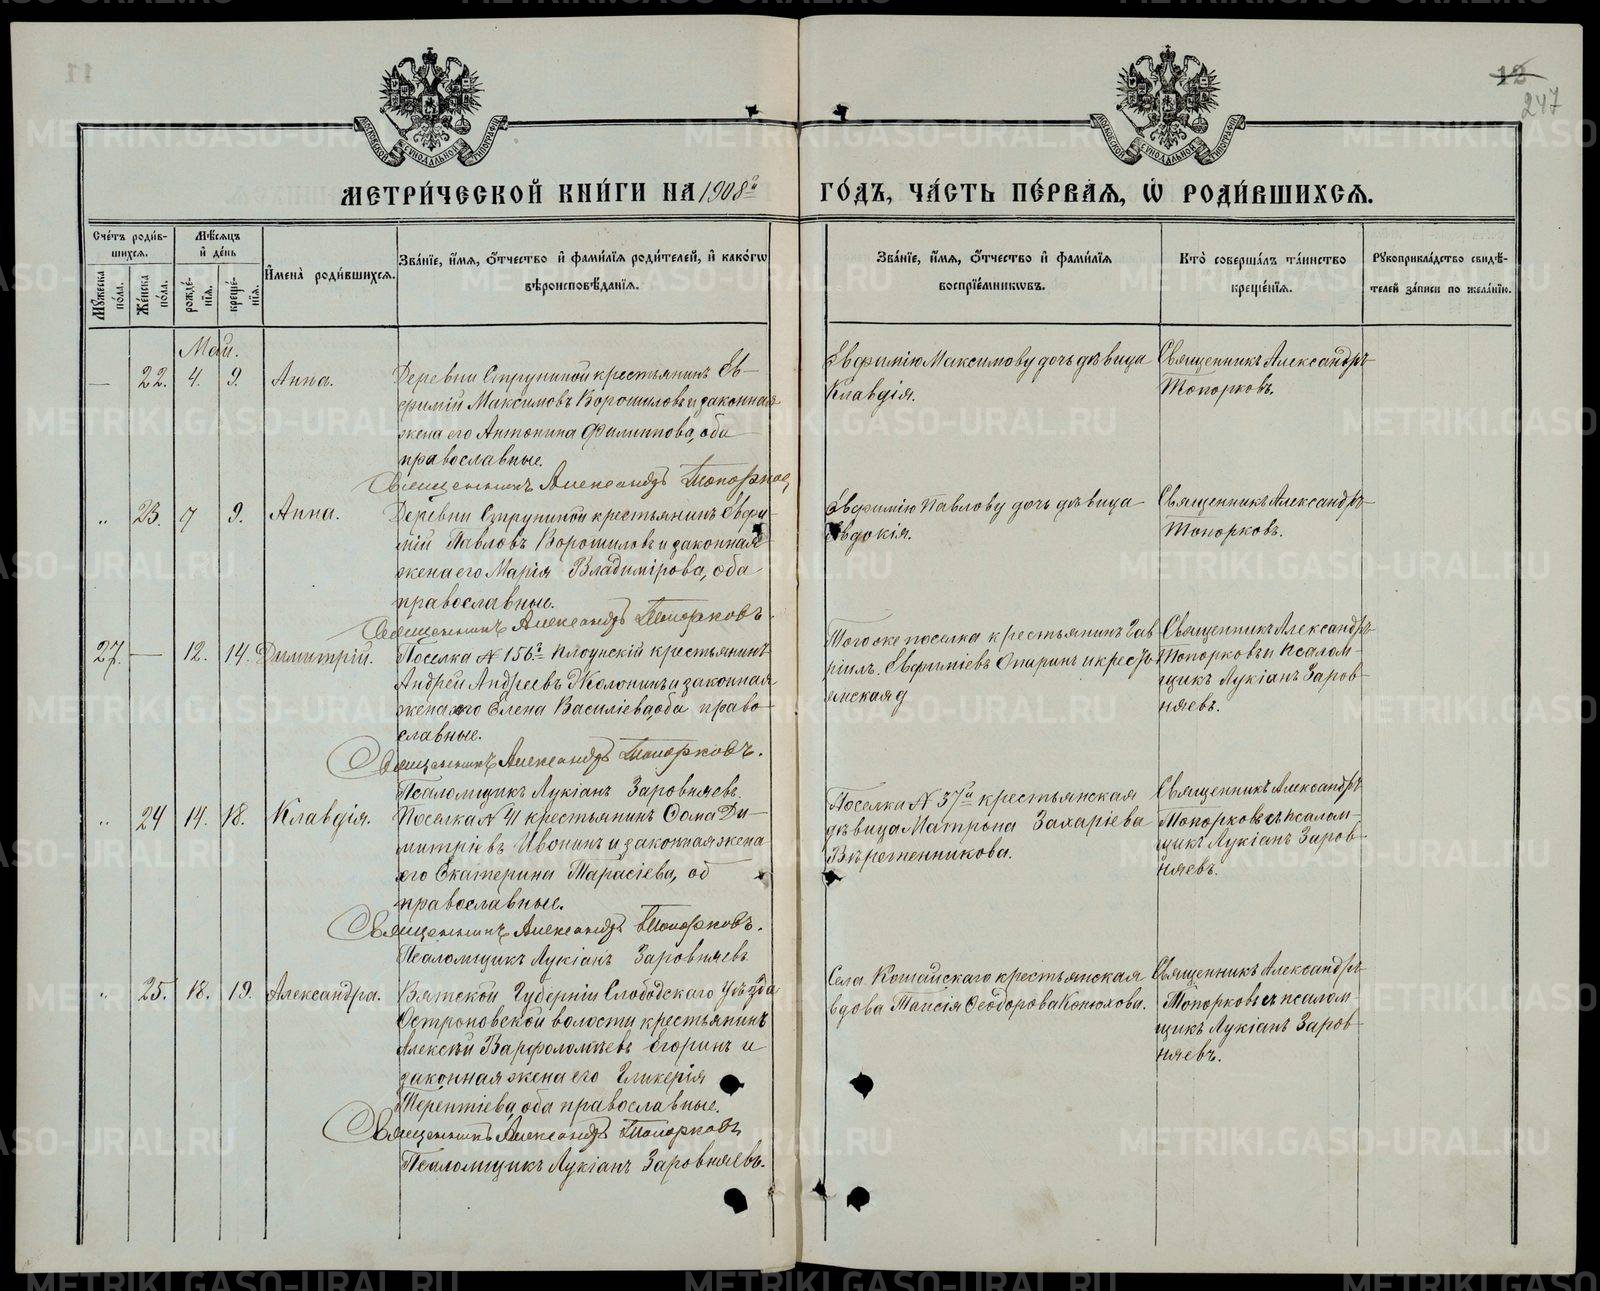 12
247
МЕТРИ́ЧЕСКОЙ КНИ́ГИ НА 1908й ГО́ДЪ, ЧА́СТЬ ПЕ́РВАѦ, Ѡ РОДИ́ВШИХСѦ.
Сче́тъ роди́в-
шихсѧ.
Мѣ́сѧцъ
и де́нь
Мꙋ́жеска по́ла.
Же́нска по́ла.
рожде́-
нїѧ.
креще́-
нїѧ.
И҆мена̀ роди́вшихсѧ.
Зва́нїе, и҆́мѧ, ѻ҆́тчество и҆ фами́лїѧ роди́телей, и҆ како́гѡ
вѣроисповѣ́данїѧ.
Зва́нїе, и҆́мѧ, ѻ҆́тчество и҆ фами́лїѧ
воспрїе́мникѡвъ.
Кто̀ соверша́лъ та́инство
креще́нїѧ.
Рꙋкоприкла́дство свидѣ́-
телей за́писи по жела́нїю.
Май.
— 22. 4. 9. Анна.
Деревни Струниной крестьянинъ Ев-
фимій Максимовъ Ворошиловъ и законная
жена его Антонина Филиппова, оба
православные.
Священникъ Александръ Топорков
Евфимію Максимову дочь дѣвица
Клавдія.
Священникъ Александръ
Топорковъ.
„ 23. 7 9. Анна.
Деревни Струниной крестьянинъ Евфи-
мій Павловъ Ворошиловъ и законная
жена его Марія Владимірова, оба
православные.
Священникъ Александръ Топорковъ.
Евфимію Павлову дочь дѣвица
Евдокія.
Священникъ Александръ
Топорковъ.
27. — 12. 14. Димитрій.
Поселка № 156й крестьянинъ
Андрей Андреевъ Жолонинъ и законная
жена его Елена Васильева, оба право-
славные.
Священникъ Александръ Топорковъ.
Псаломщикъ Лукіанъ Заровняевъ.
Того же поселка крестьянинъ Гав-
ріилъ Евфиміевъ Опаринъ и кресть-
янская д
Священникъ Александръ
Топорковъ и псалом-
щикъ Лукіанъ Заров-
няевъ.
„ 24 14. 18. Клавдія.
Поселка № 41 крестьянинъ Фома Ди-
митріевъ Ивонинъ и законная жена
его Екатерина Тарасіева, об
православные.
Священникъ Александръ Топорковъ.
Псаломщикъ Лукіанъ Заровняевъ
Поселка № 37й крестьянская
дѣвица Матрона Захаріева
Веретенникова.
Священникъ Александръ
Топорковъ съ псалом-
щикъ Лукіанъ Заров-
няевъ.
„ 25. 18. 19. Александра.
Вятской Губерніи Слободского Уѣзда
Островской волости крестьянинъ
Алексѣй Варфоломѣевъ Егоринъ и
законная жена его Гликерія
Терентіева, оба православные.
Священникъ Александръ Топорковъ
Псаломщикъ Лукіанъ Заровняевъ.
Села Кошайскаго крестьянская
вдова Таисія Ѳеодорова Конюхова.
Священникъ Александръ
Топорковъ съ псалом-
щикъ Лукіанъ Заров-
няевъ.
METRIKI.GASO-URAL.RU